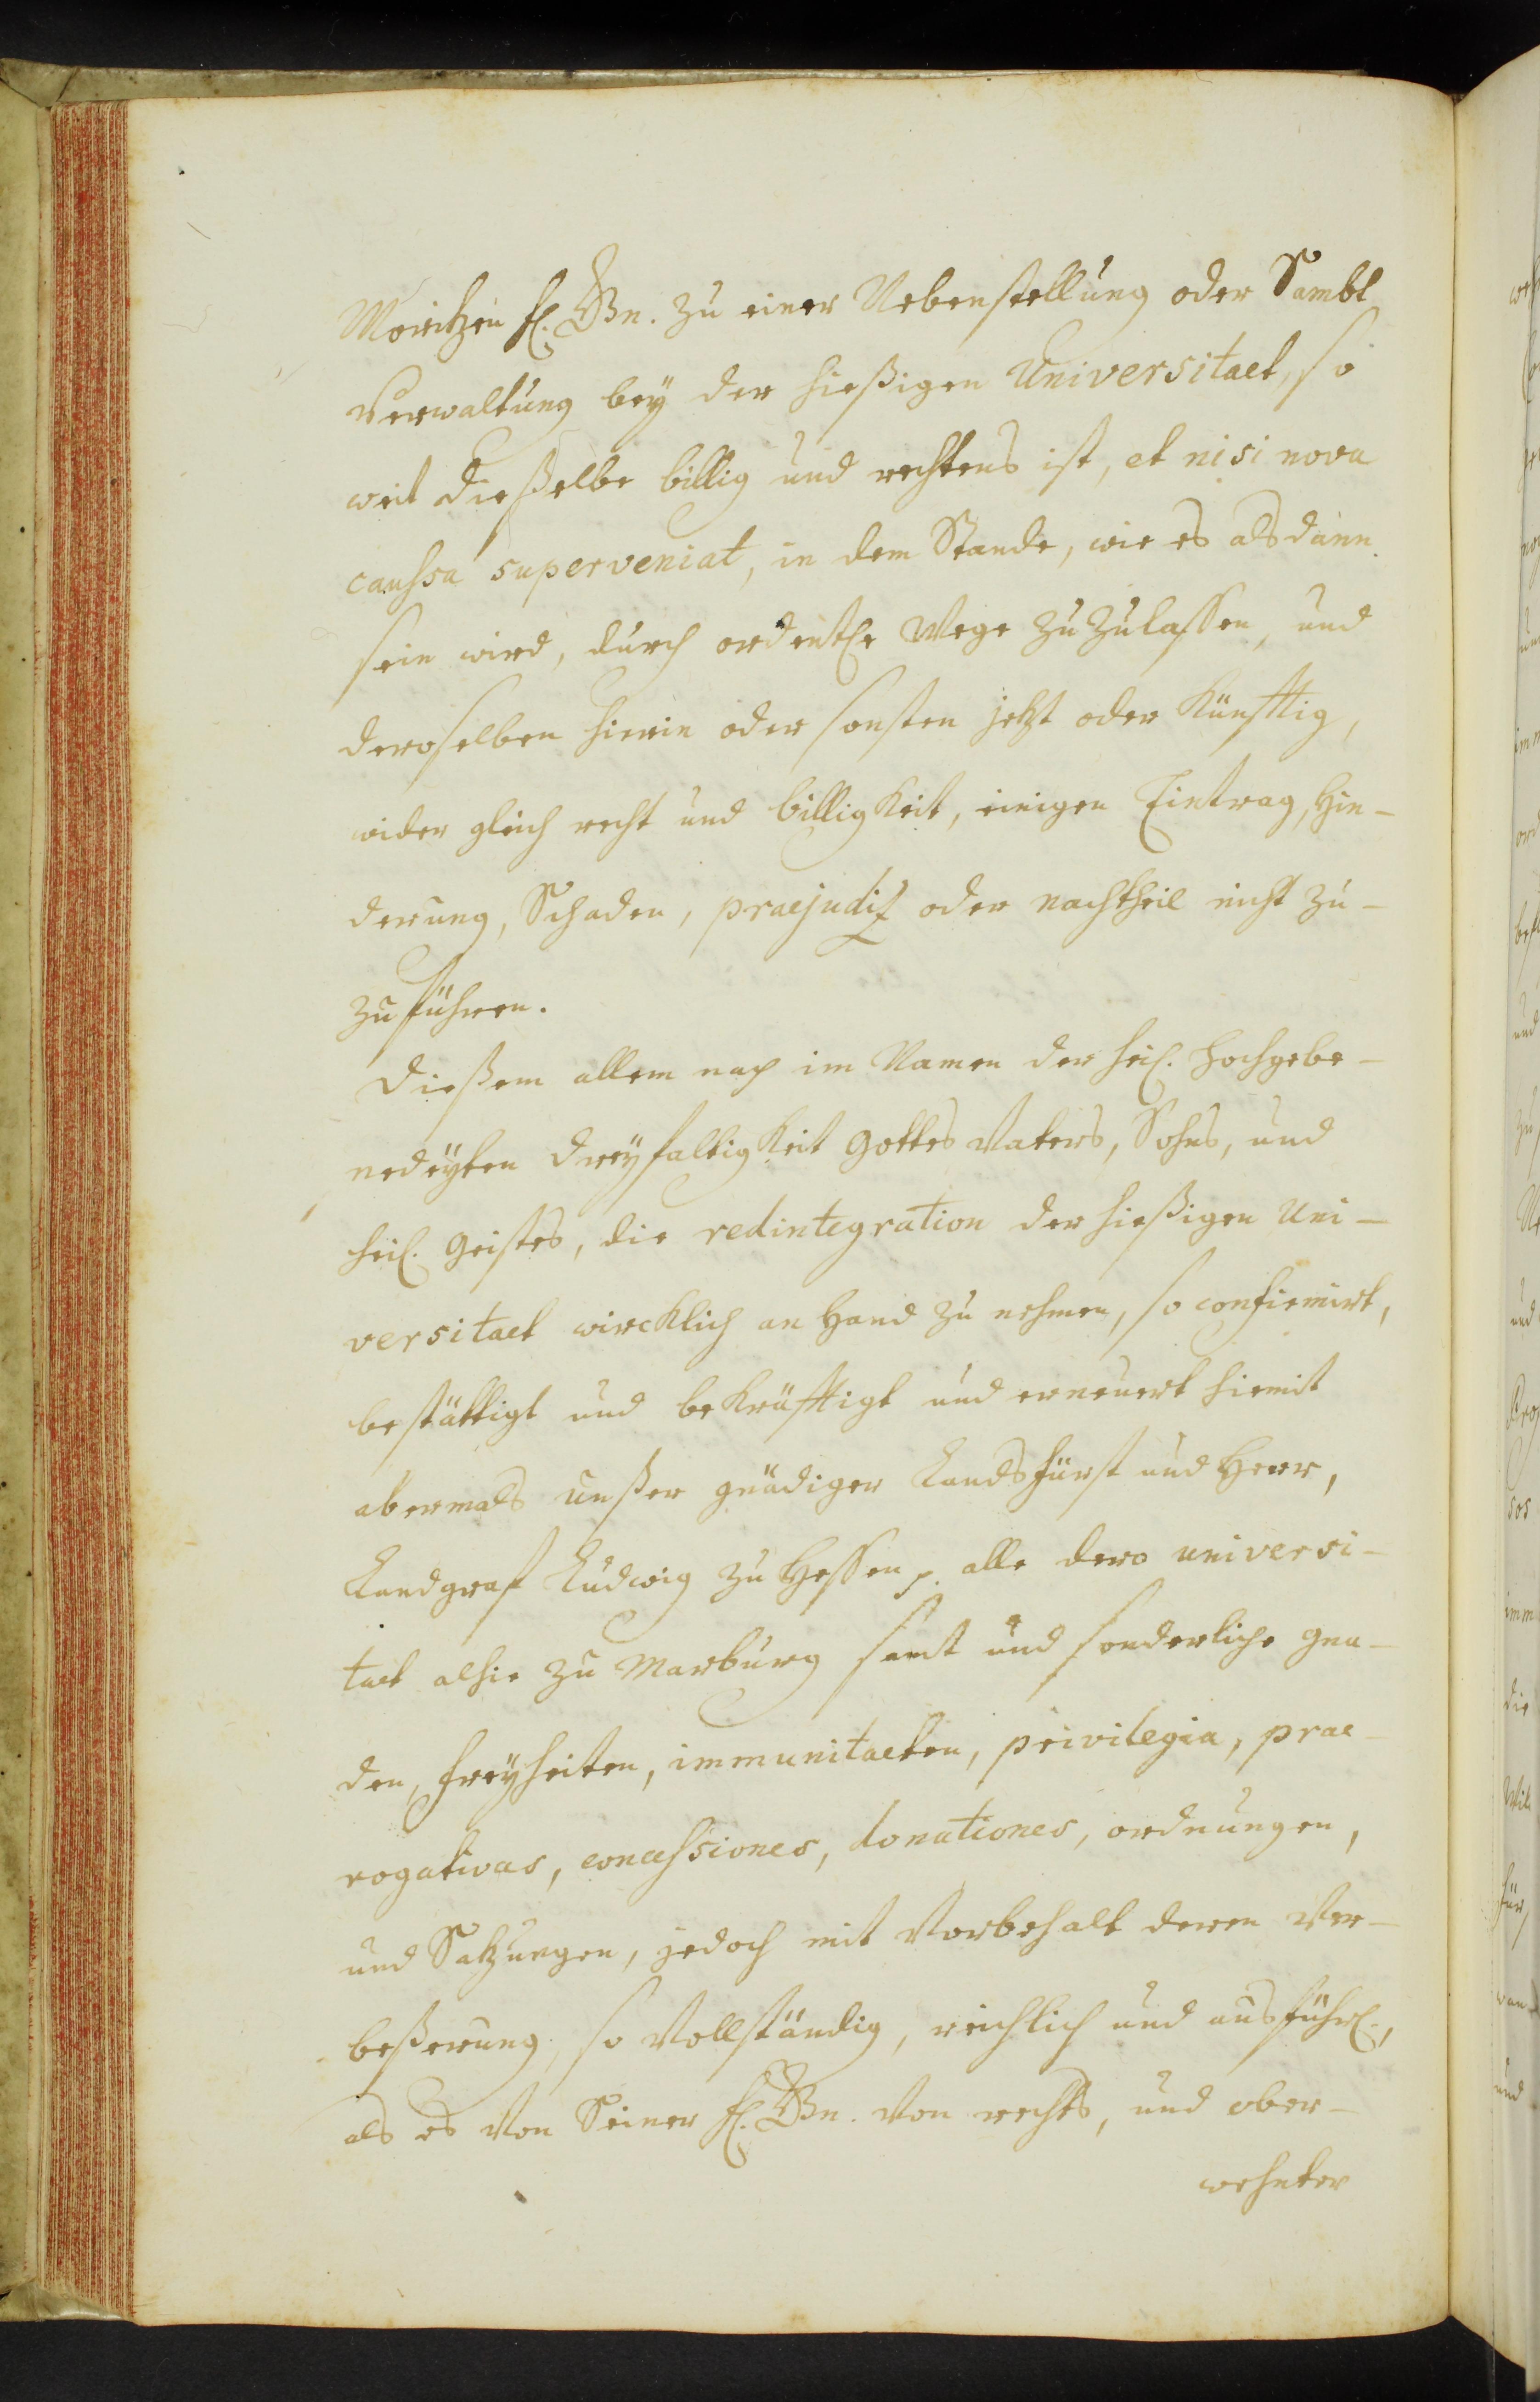 Moritzen fl. Gn. zu einer Nebenstellung oder Sambt
Verwaltung bey der hießigen Universitaet, so
weit dießelbe billig und rechtens ist, et nisi nova
caussa superveniat, in dem Stande, wie es alsdann
sein wird, durch ordentl. Wege zuzulassen, und
deroselben hierin oder sonsten jetzt oder künfftig,
wider gleich recht und billigkeit, einigen Eintrag, Hin-
derung, Schaden, praejudiz oder nachtheil nicht zu-
zuführen.
Dießem allem nach im Namen der heil. hochgebe-
nedeyten dreyfaltigkeit Gottes Vaters, Sohns, und
heil. Geistes, die redintegration der hießigen Uni-
versitaet wircklich an Hand zu nehmen, so confirmirt,
bestättigt und bekräfftigt und erneuert hiemit
abermals unßer gnädiger Landsfürst und Herr,
Landgraf Ludwig zu Hessen p. alle dero universi-
taet alhie zu Marburg samt und sonderliche gna-
den, freyheiten, immunitaeten, privilegia, prae-
rogativas, concessiones, donationes, ordnungen,
und Satzungen, jedoch mit Vorbehalt deren Ver-
beßerung, so vollständig, reichlich und ausführl.,
als es von Seiner fl. Gn. von rechts, und ober-
wehnter